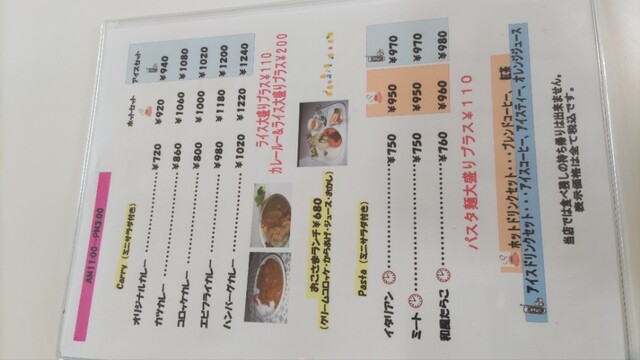 AM11:00~PM3:00
Curry (ミニサラダ付き) ホットセット アイスセット
オリジナルカレー ¥720 ¥920 ¥940
カツカレー ¥860 ¥1060 ¥1080
コロッケカレー ¥800 ¥1000 ¥1020
エビフライカレー ¥980 ¥1180 ¥1200
ハンバーグカレー ¥1020 ¥1220 ¥1240
ライス大盛りプラス¥110
カレールー&ライス大盛りプラス¥200
おこさまランチ¥680
(クリームコロッケ・からあげ・ジュース・おかし)
Pasta (ミニサラダ付き)
イタリアン ¥750 ¥950 ¥970
ミート ¥750 ¥950 ¥970
和風たらこ ¥760 ¥960 ¥980
パスタ麺大盛りプラス¥110
ホットドリンクセット・・・ブレンドコーヒー、紅茶
アイスドリンクセット・・・アイスコーヒー、アイスティー、オレンジジュース
当店では食べ残しの持ち帰りは出来ません。
表示価格は全て税込です。